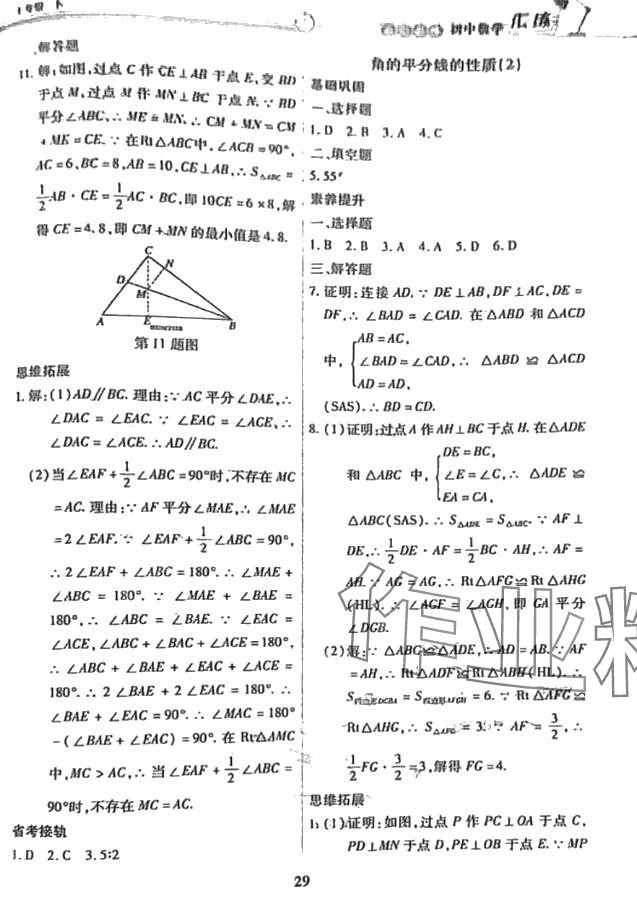 解答题
11. 解:如图,过点 C 作 CE⊥AB 于点 E,交 BD
于点 M,过点 M 作 MN⊥BC 于点 N. ∵ BD
平分∠ABC,∴ ME = MN. ∴ CM + MN = CM
+ ME = CE. ∵ 在 Rt△ABC 中,∠ACB = 90°,
AC = 6,BC = 8,AB = 10,CE⊥AB,∴ S△ABC =
1/2 AB · CE = 1/2 AC · BC,即 10CE = 6 × 8,解
得 CE = 4.8,即 CM + MN 的最小值是 4.8.
C
N
D
M
A
E
B
第 11 题图
思维拓展
1. 解:(1)AD∥BC. 理由:∵ AC 平分∠DAE,∴
∠DAC = ∠EAC. ∵ ∠EAC = ∠ACE,∴
∠DAC = ∠ACE. ∴ AD∥BC.
(2)当∠EAF + 1/2∠ABC = 90°时,不存在 MC
= AC. 理由:∵ AF 平分∠MAE,∴ ∠MAE
= 2∠EAF. ∵ ∠EAF + 1/2∠ABC = 90°,
∴ 2∠EAF + ∠ABC = 180°. ∴ ∠MAE +
∠ABC = 180°. ∵ ∠MAE + ∠BAE =
180°,∴ ∠ABC = ∠BAE. ∵ ∠EAC =
∠ACE,∠ABC + ∠BAC + ∠ACE = 180°,
∴ ∠ABC + ∠BAE + ∠EAC + ∠ACE =
180°. ∴ 2∠BAE + 2∠EAC = 180°. ∴
∠BAE + ∠EAC = 90°. ∴ ∠MAC = 180°
-(∠BAE + ∠EAC) = 90°. 在 Rt△AMC
中,MC > AC,∴ 当∠EAF + 1/2∠ABC =
90°时,不存在 MC = AC.
省考接轨
1. D 2. C 3. 5:2
初中数学
汇练
角的平分线的性质(2)
基础巩固
一、选择题
1. D 2. B 3. A 4. C
二、填空题
5. 55°
素养提升
一、选择题
1. B 2. B 3. A 4. A 5. D 6. D
三、解答题
7. 证明:连接 AD. ∵ DE⊥AB,DF⊥AC,DE =
DF,∴ ∠BAD = ∠CAD. 在△ABD 和△ACD
AB = AC,
中,∠BAD = ∠CAD,∴ △ABD ≌ △ACD
AD = AD,
(SAS). ∴ BD = CD.
8. (1)证明:过点 A 作 AH⊥BC 于点 H. 在△ADE
DE = BC,
和△ABC 中,∠E = ∠C,∴ △ADE ≌
EA = CA,
△ABC(SAS). ∴ S△ADE = S△ABC. ∵ AF⊥
DE,∴ 1/2 DE · AF = 1/2 BC · AH,∴ AF =
AH. ∵ AG = AG,∴ Rt△AFG ≌ Rt△AHG
(HL). ∴ ∠AGF = ∠AGH,即 GA 平分
∠DGB.
(2)解:∵ △ABC ≌ △ADE,∴ AD = AB. ∵ AF
= AH,∴ Rt△ADF ≌ Rt△ABH(HL). ∴
S四边形DGBA = S四边形AFGH = 6. ∵ Rt△AFG ≌
Rt△AHG,∴ S△AFG = 3. ∵ AF = 3/2,∴
1/2 FG · 3/2 = 3,解得 FG = 4.
思维拓展
1. (1)证明:如图,过点 P 作 PC⊥OA 于点 C,
PD⊥MN 于点 D,PE⊥OB 于点 E. ∵ MP
作业精
29